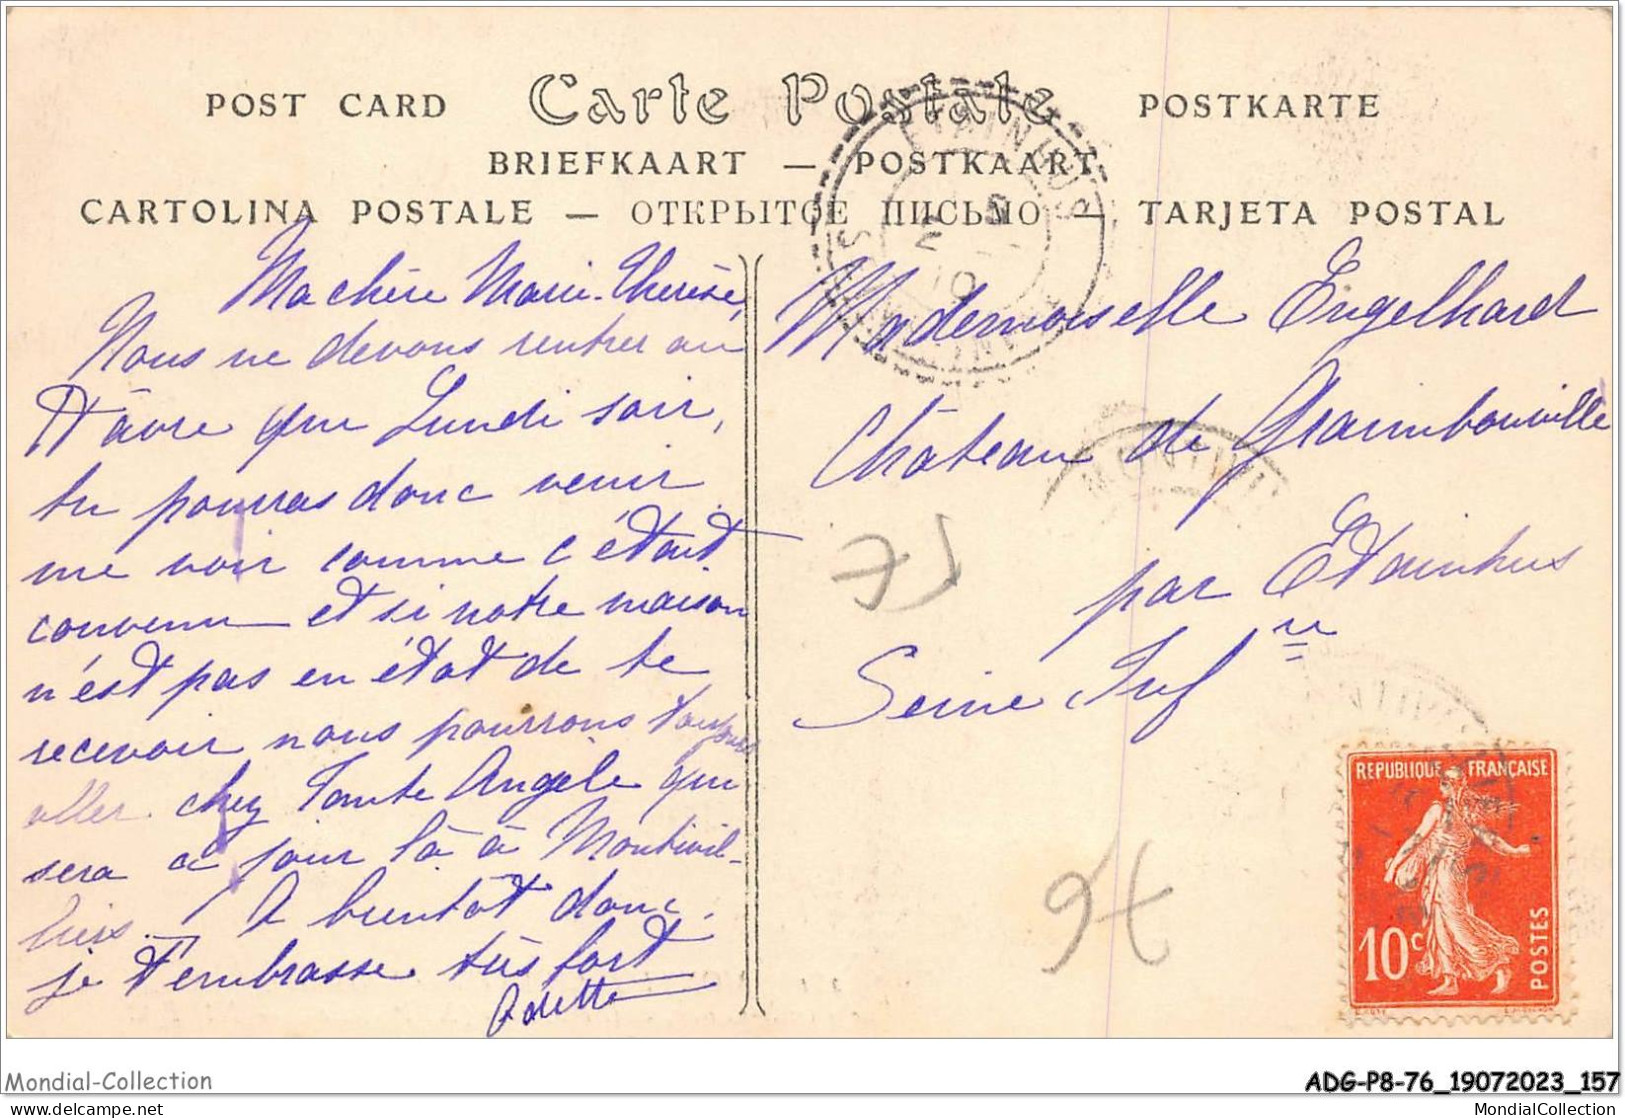 POST CARD Carte Postale POSTKARTE
BRIEFKAART — POSTKAART
CARTOLINA POSTALE — ОТКРЫТОЕ ПИСЬМО — TARJETA POSTAL
Ma chère Marie-Thérèse,
Nous ne devons rentrer au
Hâvre que Lundi soir,
tu pourras donc venir
me voir comme c'était
convenu et si notre maison
n'est pas en état de te
recevoir nous pourrons toujours
aller chez Tante Angèle qui
sera ce jour là à Montivil-
liers. A bientôt donc.
je t'embrasse très fort
Odette
Mademoiselle Engelhard
Château de Graimbouville
par Etainhus
Seine Inf re
ETAINHUS
SEINE INF
10
MONTIVI
75
9t
REPUBLIQUE FRANÇAISE
10c
POSTES
Mondial-Collection
ADG-P8-76_19072023_157
delcampe.net
MondialCollection